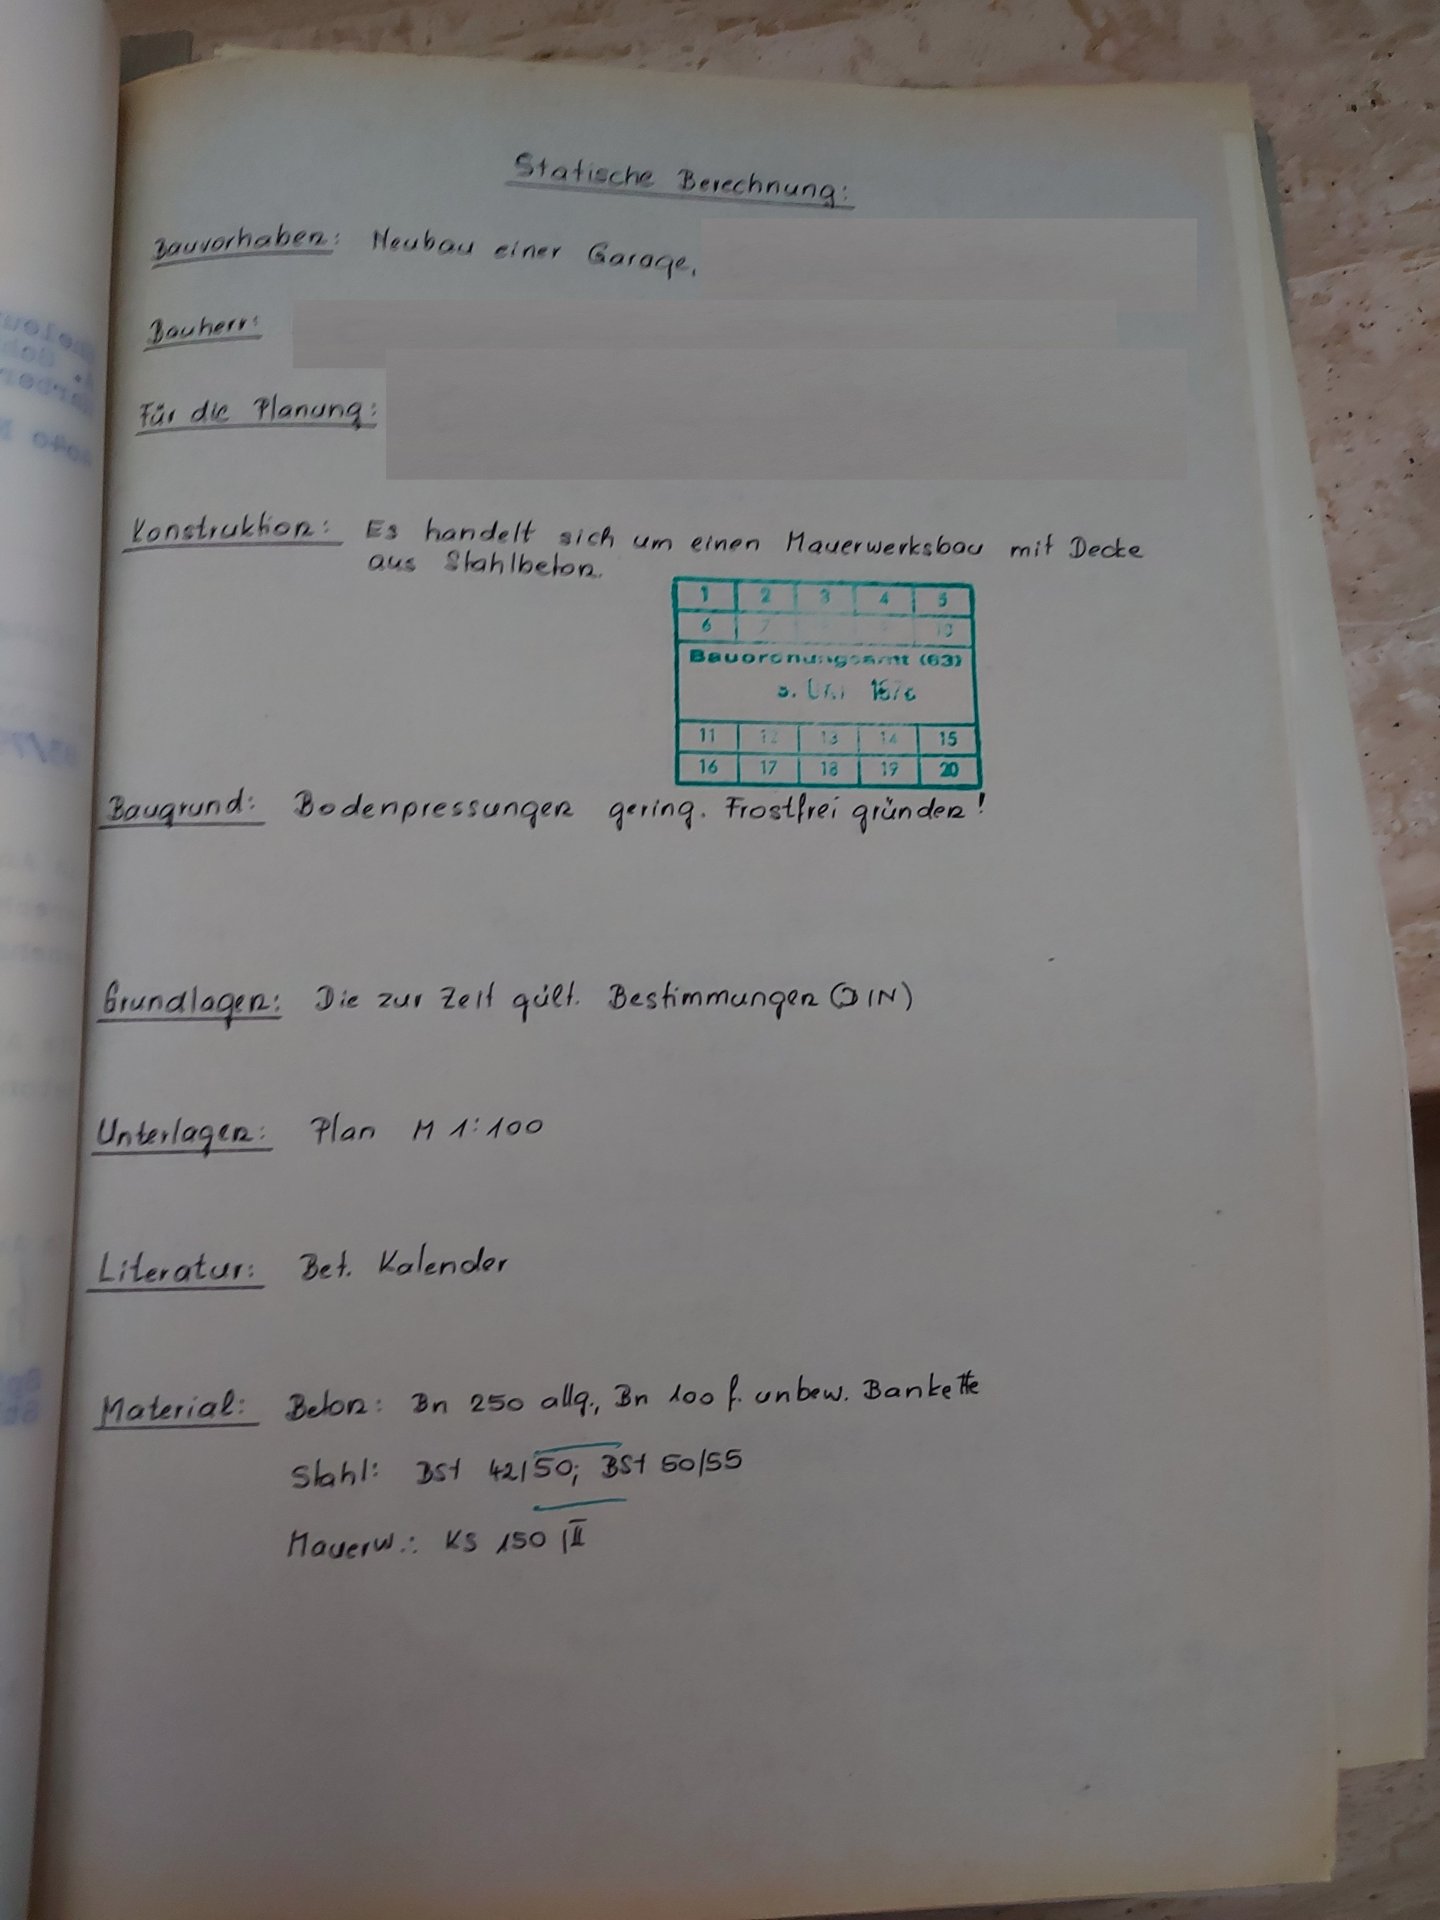 Statische Berechnung:
Bauvorhaben: Neubau einer Garage,
Bauherr:
Für die Planung:
Konstruktion: Es handelt sich um einen Mauerwerksbau mit Decke
aus Stahlbeton.
1 2 3 4 5
6 7 10
Bauordnungsamt (63)
11 12 13 14 15
16 17 18 19 20
Baugrund: Bodenpressungen gering. Frostfrei gründen!
Grundlagen: Die zur Zeit gült. Bestimmungen (DIN)
Unterlagen: Plan M 1:100
Literatur: Bet. Kalender
Material: Beton: Bn 250 allg., Bn 100 f. unbew. Bankette
Stahl: BSt 42/50; BSt 50/55
Mauerw.: KS 150 / II